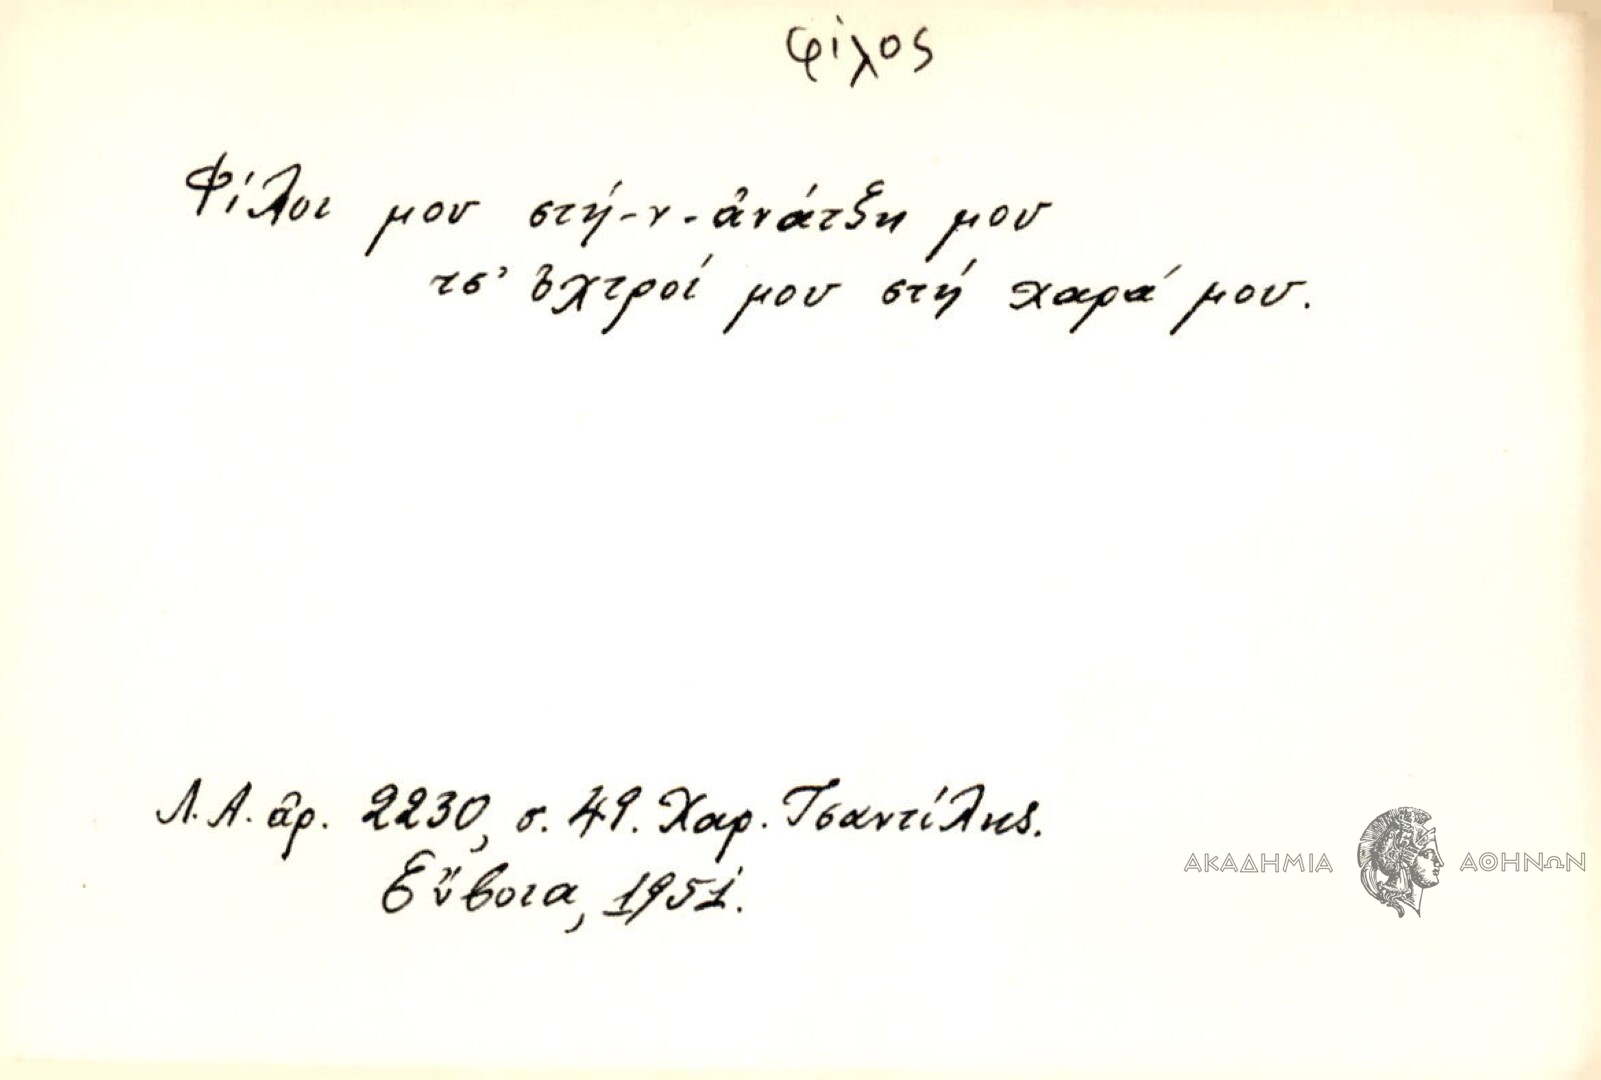 φίλος
Φίλοι μου στή-ν-ἀνάτξη μου
τσ' ὀχτροί μου στή χαρά μου.
Λ.Α. ἀρ. 2230, σ. 49. Χαρ. Τσαντίλης.
Εὔβοια, 1951.
ΑΚΑΔΗΜΙΑ ΑΘΗΝΩΝ